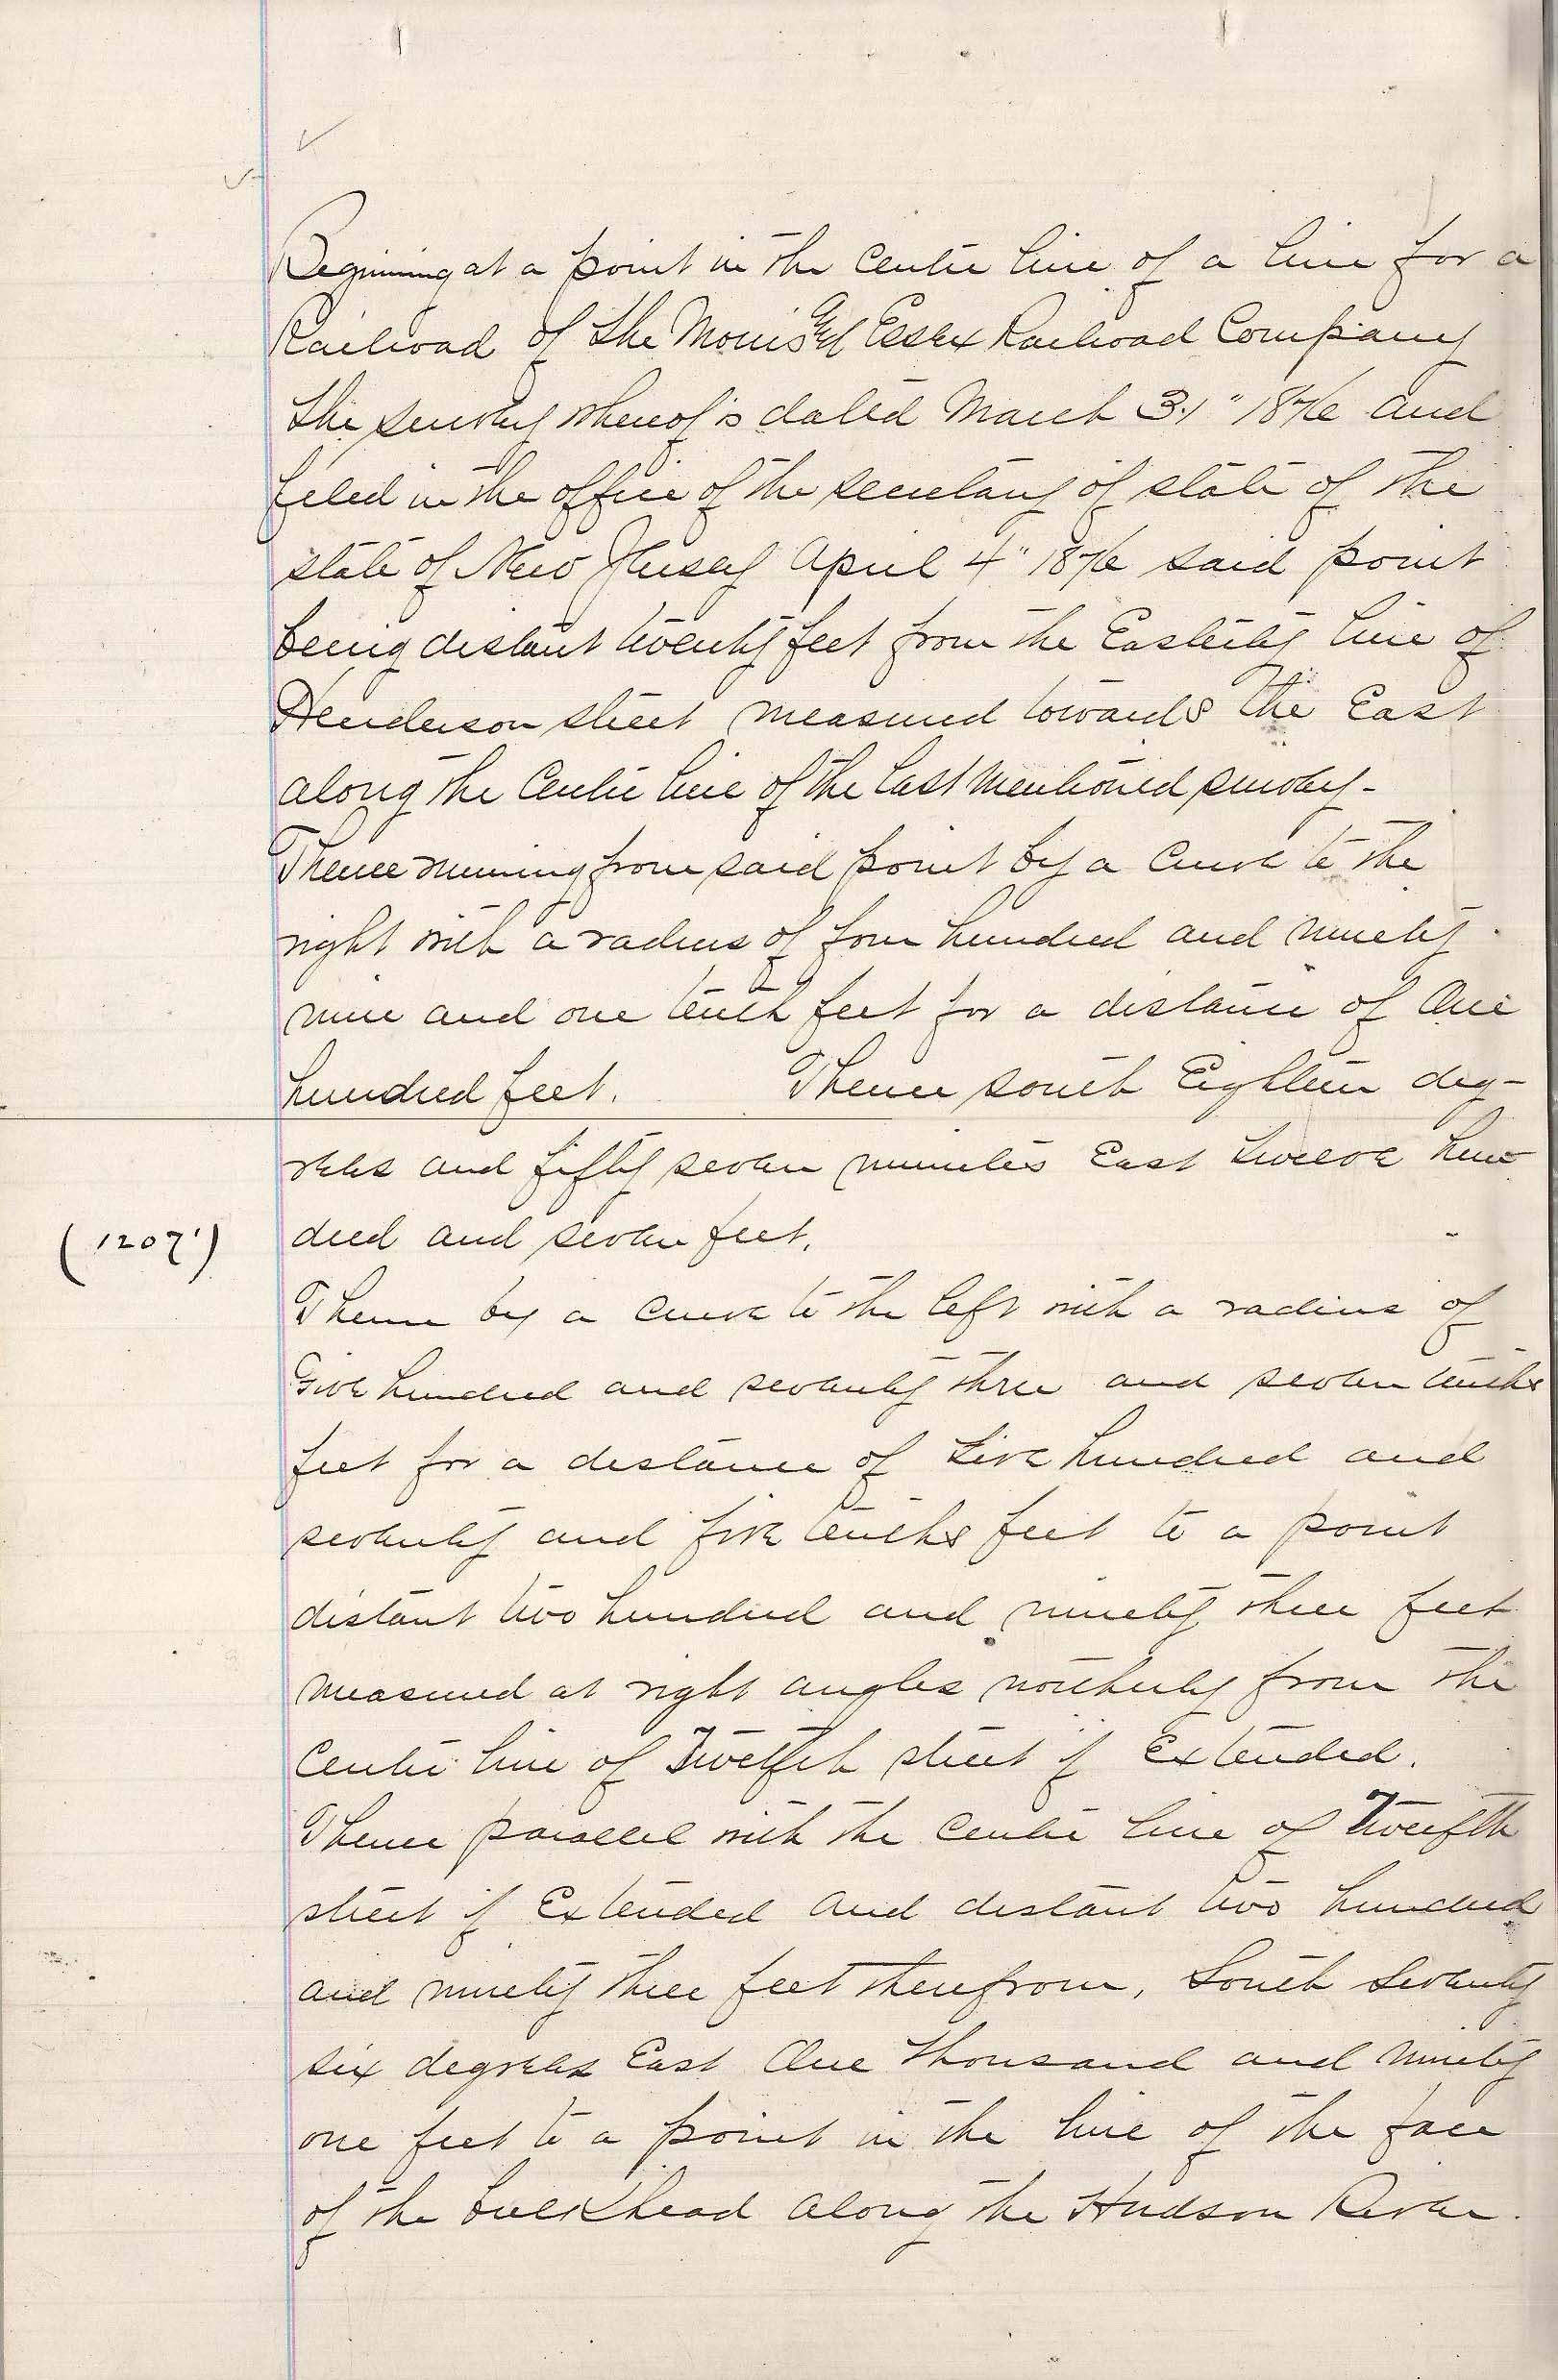 Beginning at a point in the centre line of a line for a
Railroad of the Morris and Essex Railroad Company
the survey whereof is dated March 31" 1876 and
filed in the office of the secretary of state of the
state of New Jersey April 4" 1876 said point
being distant twenty feet from the Easterly line of
Henderson street measured towards the East
along the Centre line of the last mentioned survey -
Thence running from said point by a curve to the
right with a radius of four hundred and ninety
nine and one tenth feet for a distance of One
hundred feet. Thence south Eighteen deg-
rees and fifty seven minutes East twelve hun-
(1207')
dred and seven feet.
Thence by a curve to the left with a radius of
Five hundred and seventy three and seven tenths
feet for a distance of five hundred and
seventy and five tenths feet to a point
distant two hundred and ninety three feet
measured at right angles northerly from the
Centre line of Twelfth street if Extended.
Thence parallel with the centre line of Twelfth
street if Extended and distant two hundred
and ninety three feet therefrom, South Seventy
six degrees East One thousand and ninety
one feet to a point in the line of the face
of the bulkhead along the Hudson River.